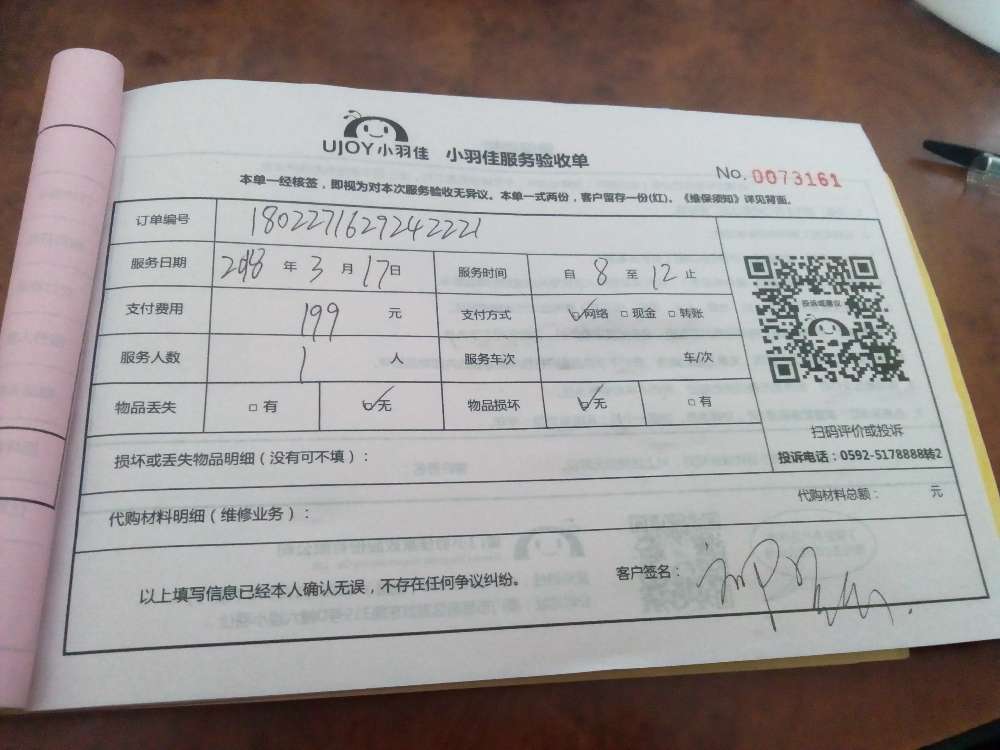 UJOY小羽佳 小羽佳服务验收单
No. 0073161
本单一经核签，即视为对本次服务验收无异议。本单一式两份，客户留存一份(红)。《维保须知》详见背面。
订单编号 1802271629242221
服务日期 2018 年 3 月 17 日 服务时间 自 8 至 12 止
支付费用 199 元 支付方式 ☑网络 □现金 □转账
投诉或建议
服务人数 1 人 服务车次 车/次
物品丢失 □有 ☑无 物品损坏 ☑无 □有
扫码评价或投诉
损坏或丢失物品明细（没有可不填）：
投诉电话：0592-5178888转2
代购材料明细（维修业务）：
代购材料总额： 元
以上填写信息已经本人确认无误，不存在任何争议纠纷。
客户签名：